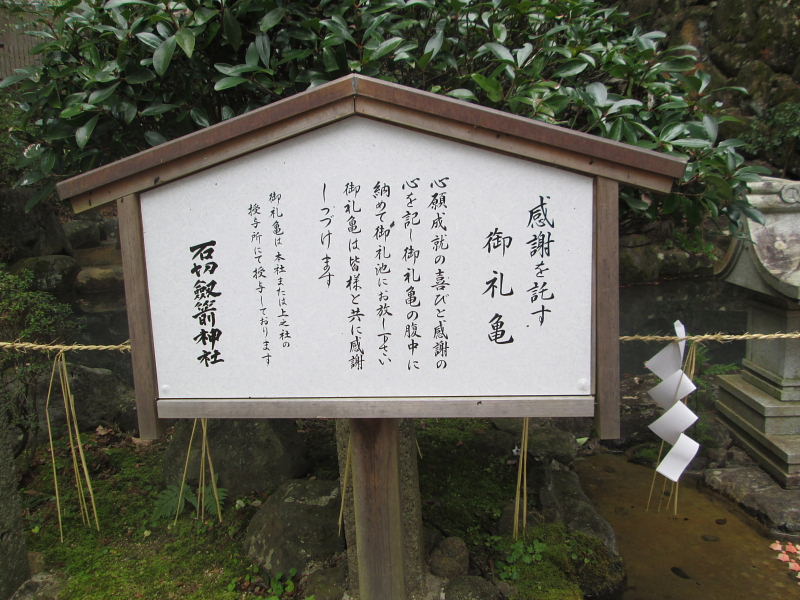 感謝を託す
御礼亀
心願成就の喜びと感謝の
心を記し御礼亀の腹中に
納めて御礼池にお放し下さい
御礼亀は皆様と共に感謝
しつづけます
御礼亀は本社または上之社の
授与所にて授与しております
石切劔箭神社